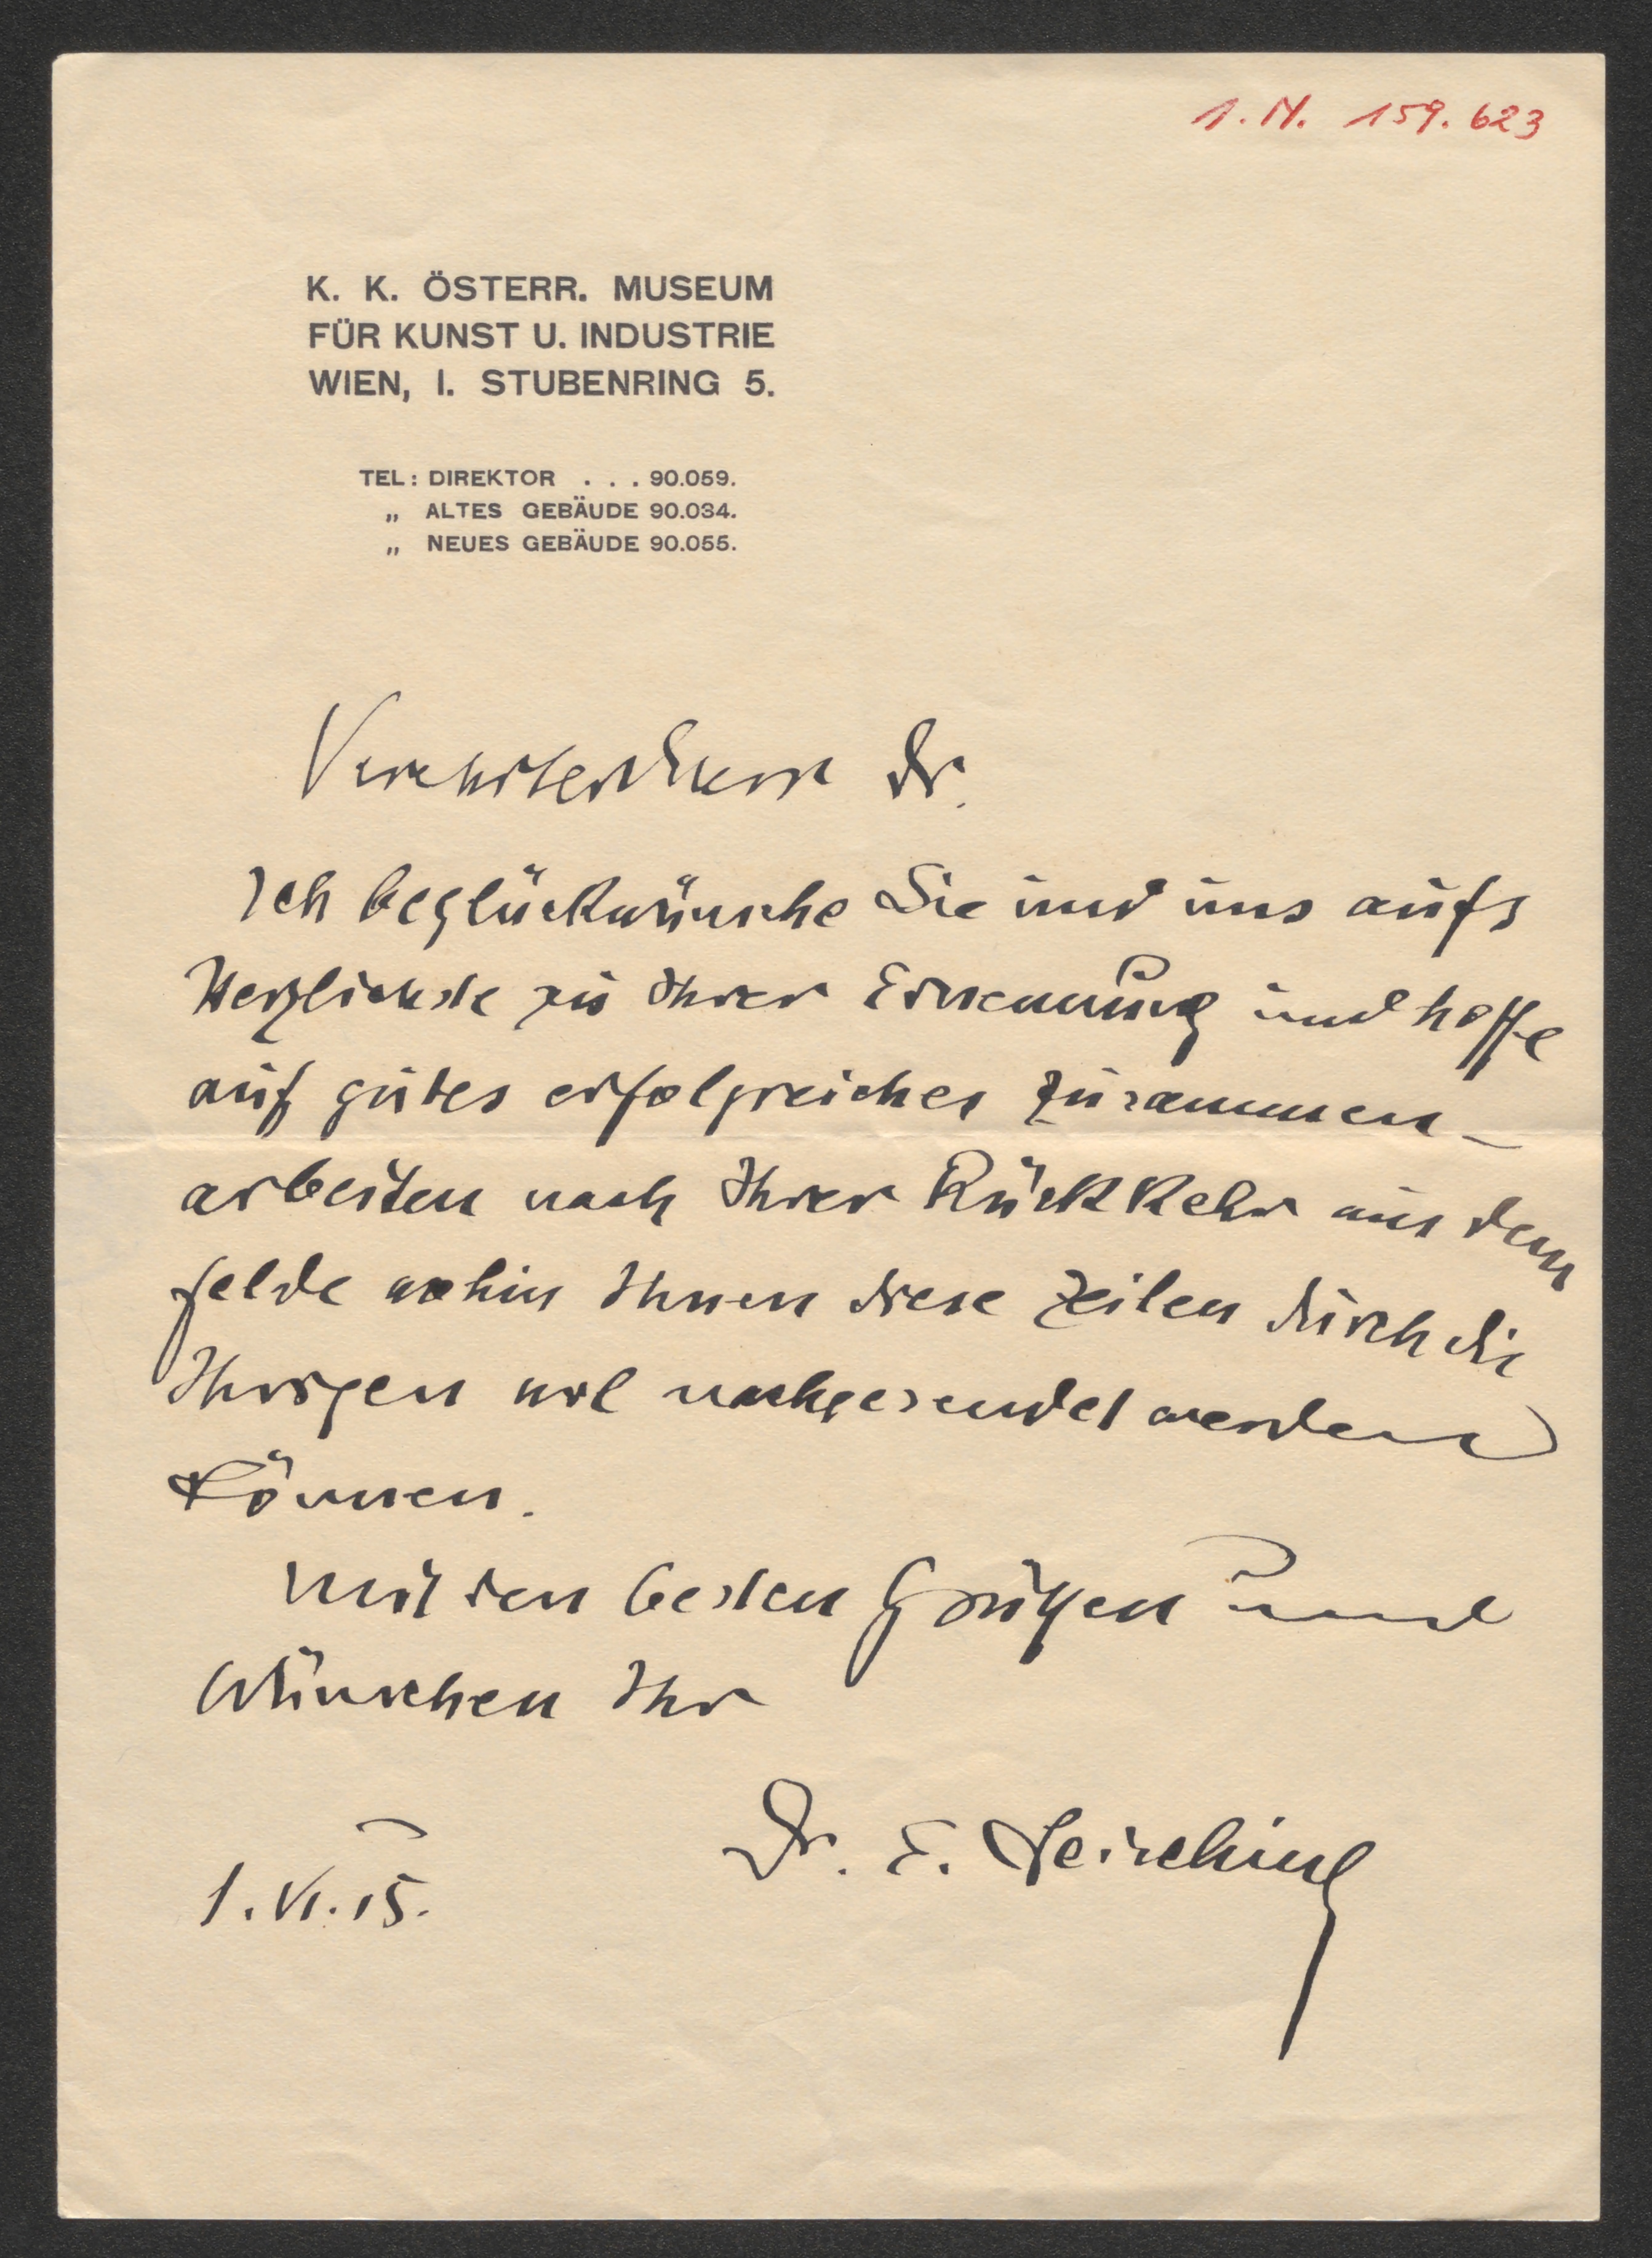 I.N. 159.623
K. K. ÖSTERR. MUSEUM
FÜR KUNST U. INDUSTRIE
WIEN, I. STUBENRING 5.
TEL: DIREKTOR . . . 90.059.
„ ALTES GEBÄUDE 90.034.
„ NEUES GEBÄUDE 90.055.
Verehrtester Herr Dr.
Ich beglückwünsche Sie und uns aufs
Herzlichste zu Ihrer Ernennung und hoffe
auf gutes erfolgreiches Zusammen-
arbeiten nach Ihrer Rückkehr aus dem
Felde wohin Ihnen diese Zeilen durch die
Ihrigen wol nachgesendet werden
können.
Mit den besten Grüßen und
Wünschen Ihr
Dr. E. Leisching
1. VI. 15.